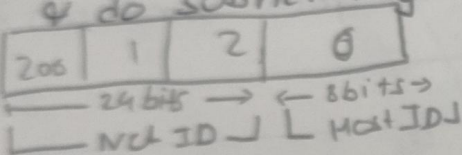 & do
206 1 2 0
24 bits 8 bits
Net ID Host ID